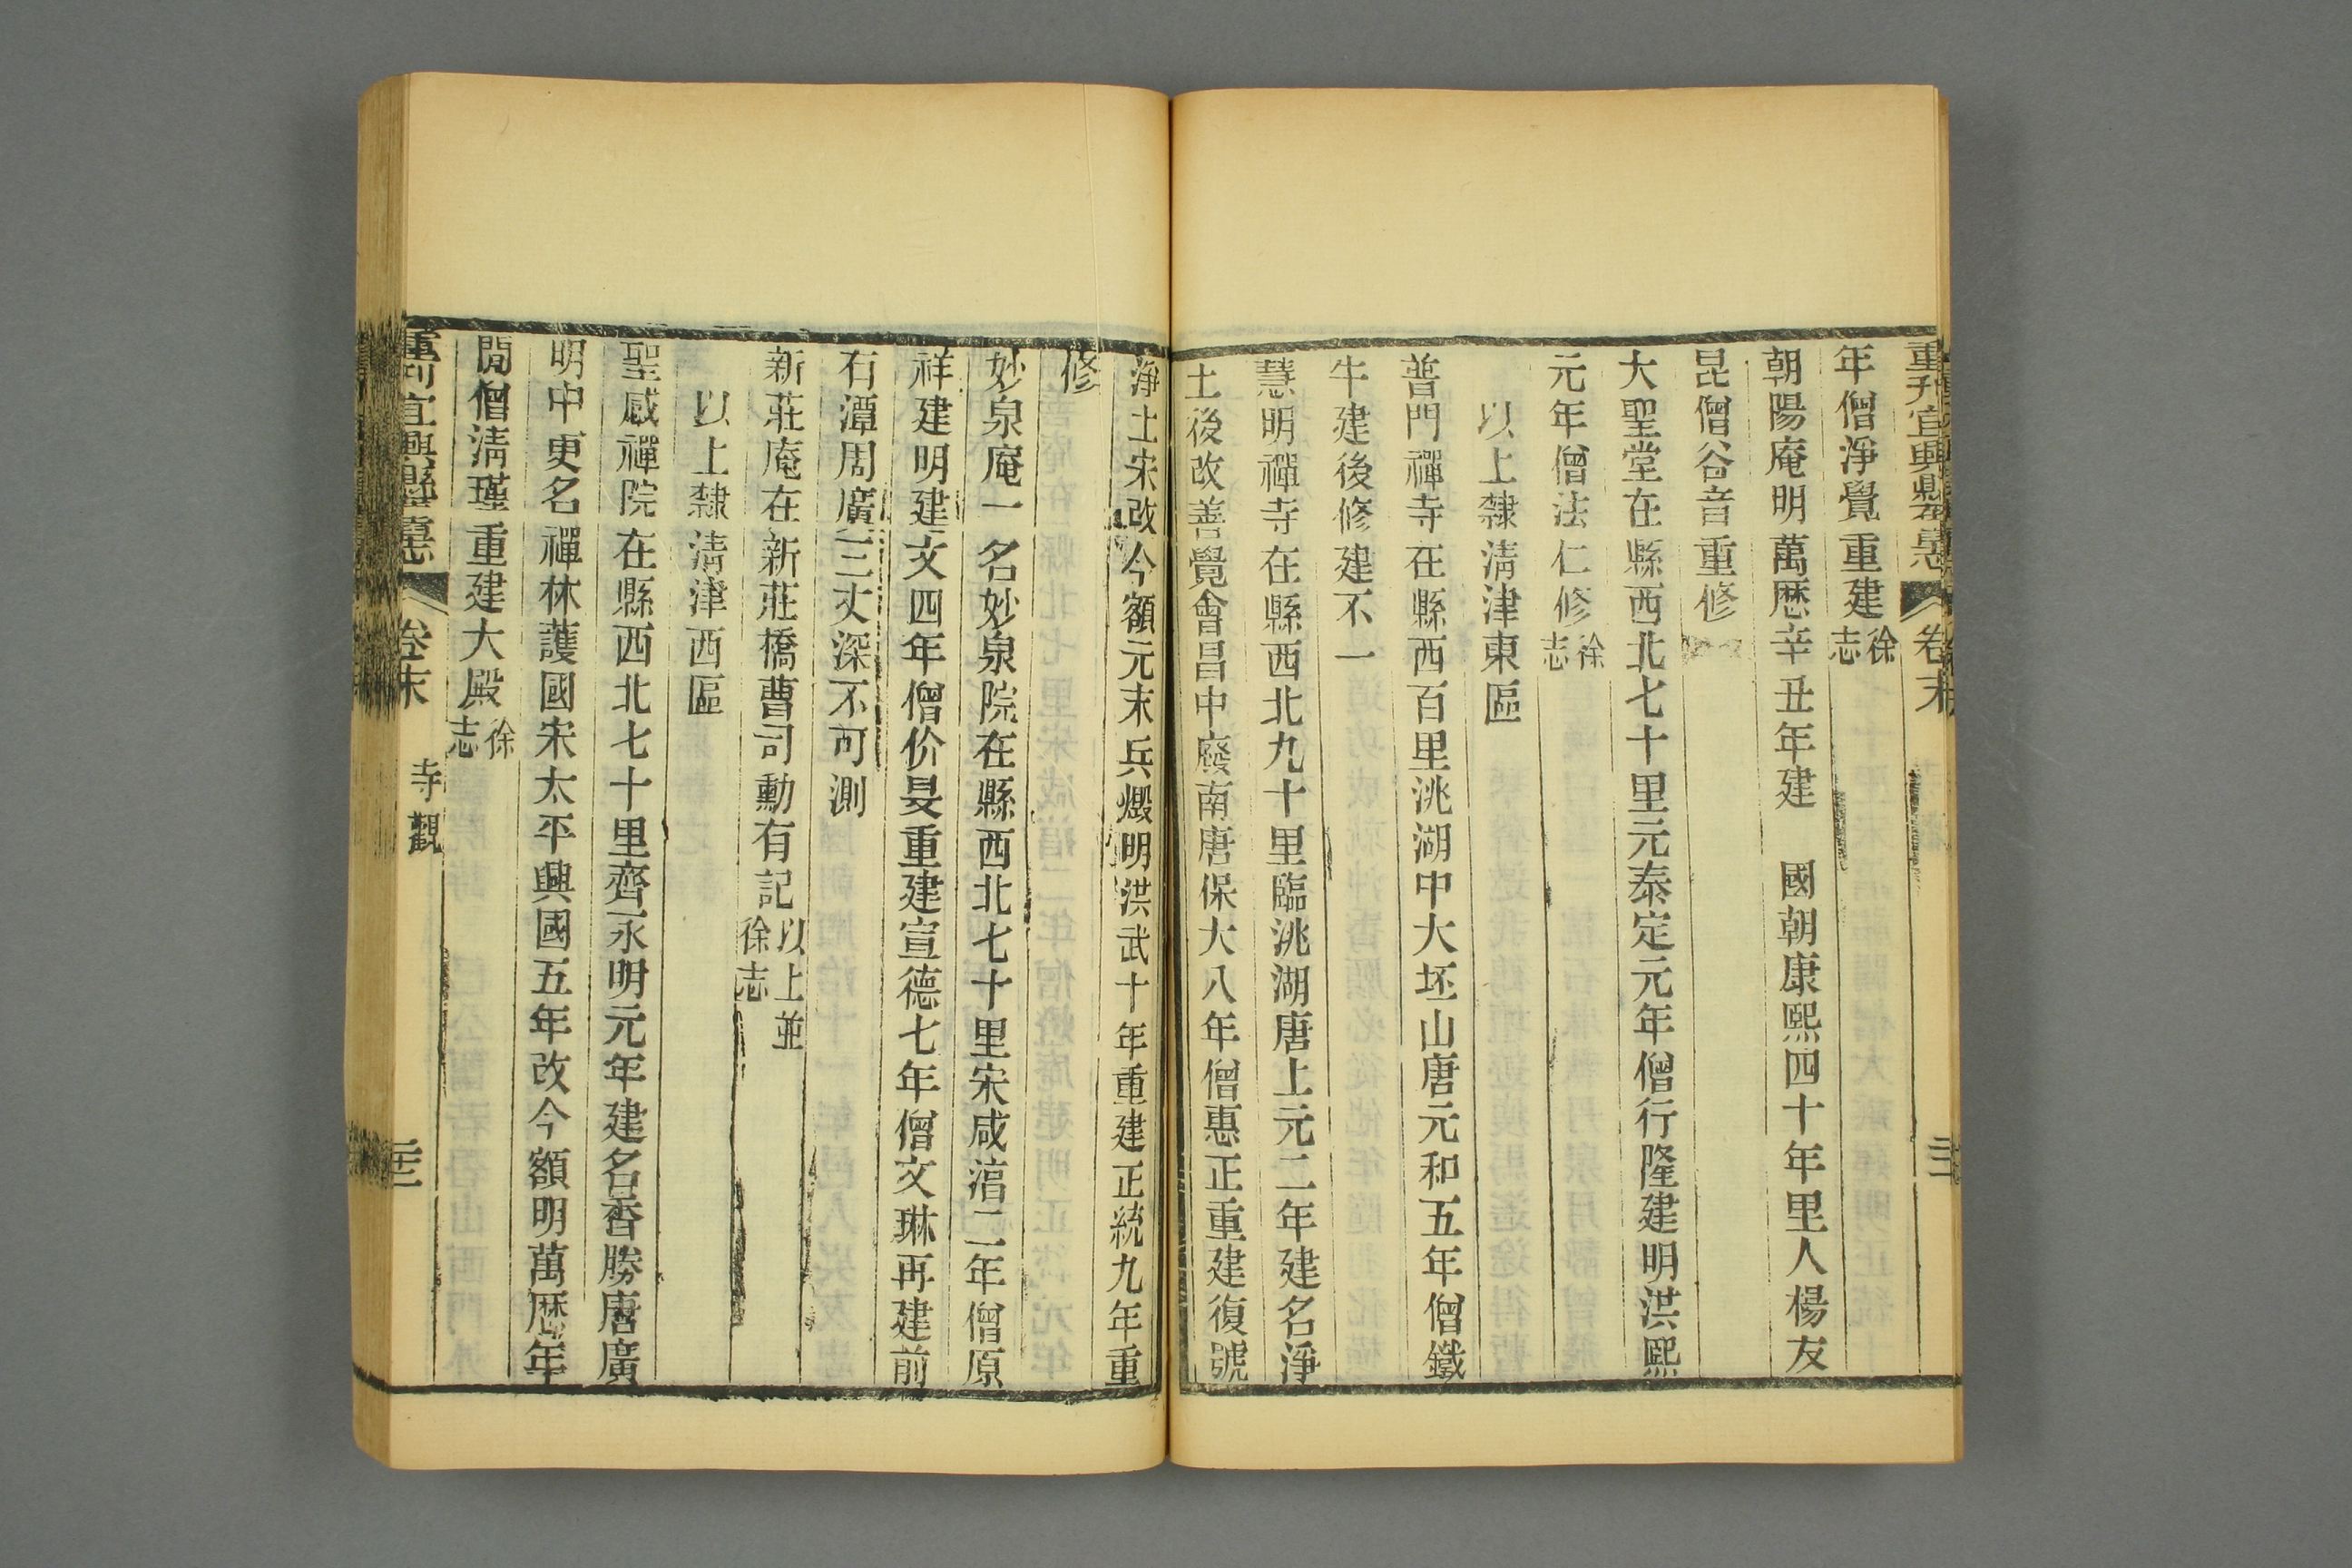 重刊宜興縣舊志 卷末
年僧淨覺重建徐志
朝陽庵明萬厯辛丑年建 國朝康熙四十年里人楊友
昆僧谷音重修
大聖堂在縣西北七十里元泰定元年僧行隆建明洪熙
元年僧法仁修徐志
以上隸清津東區
普門禪寺在縣西百里洮湖中大坯山唐元和五年僧鐵
牛建後修建不一
慧明禪寺在縣西北九十里臨洮湖唐上元二年建名淨
土後改善覺會昌中廢南唐保大八年僧惠正重建復號
淨土宋改今額元末兵燬明洪武十年重建正統九年重
修
妙泉庵一名妙泉院在縣西北七十里宋咸淳二年僧原
祥建明建文四年僧价旻重建宣德七年僧文琳再建前
石潭周廣三丈深不可測
新莊庵在新莊橋曹司勳有記以上並徐志
以上隸清津西區
聖感禪院在縣西北七十里齊永明元年建名香勝唐廣
明中更名禪林護國宋太平興國五年改今額明萬厯年
間僧清瑾重建大殿徐志
重刊宜興縣舊志 卷末 寺觀